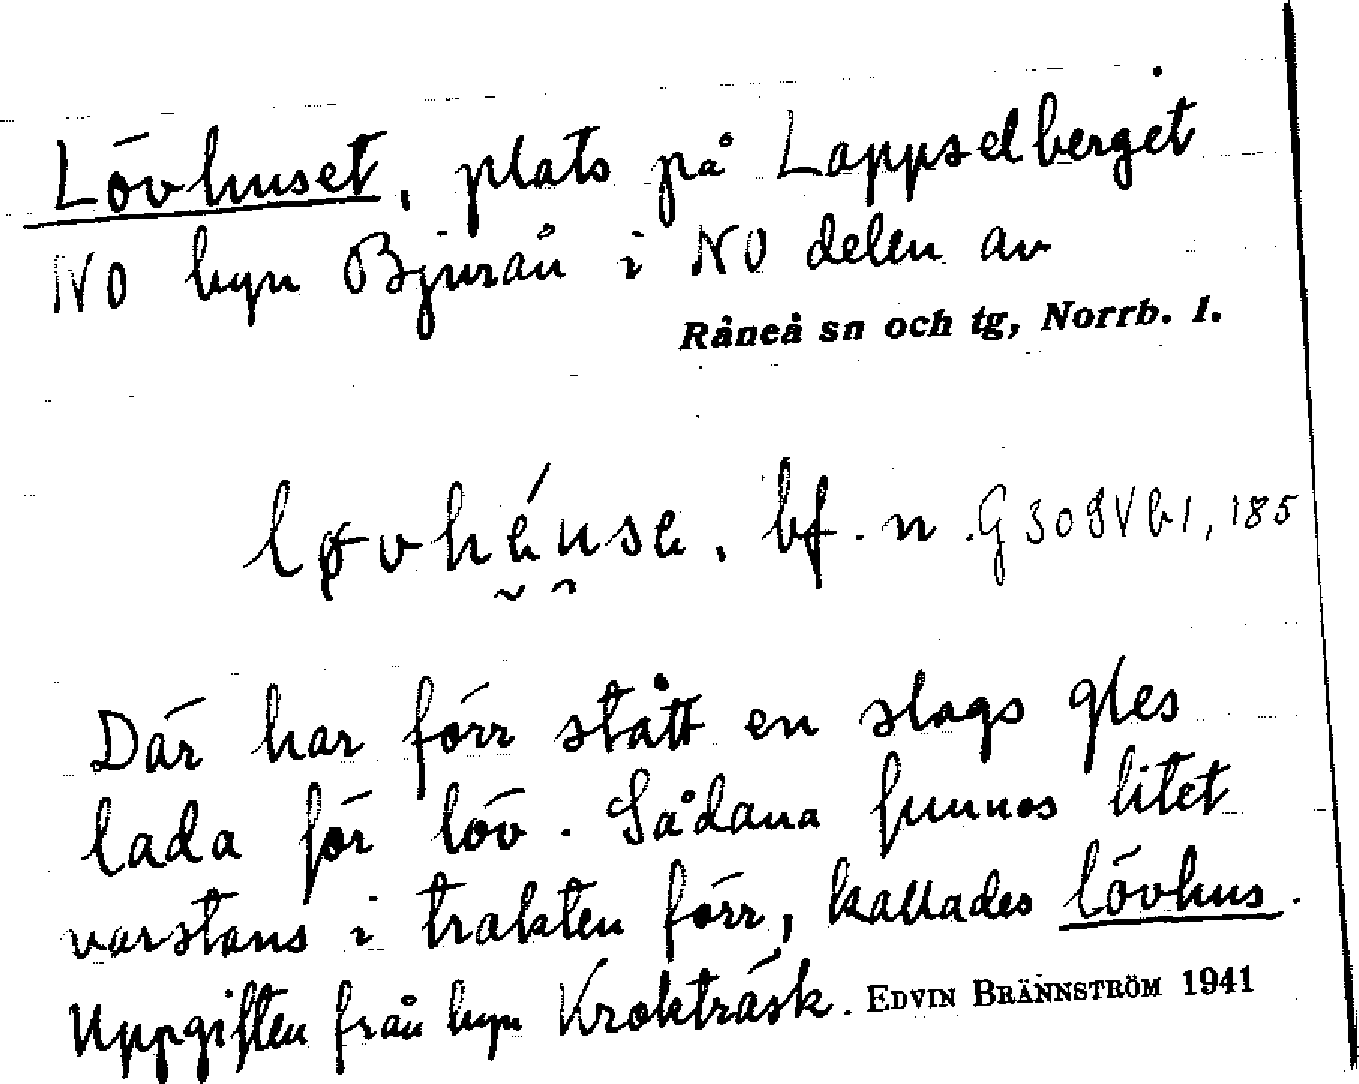 Lövhuset, plats på Lappselberget
NO byn Bjurån i NO delen av
Råneå sn och tg, Norrb. l.
løvhéuse, bf. n. G 30 8 V b 1, 185
Där har förr stått en slags gles
lada för löv. Sådana funnos litet
varstans i trakten förr, kallades lövhus.
Uppgiften från byn Krokträsk. EDVIN BRÄNNSTRÖM 1941